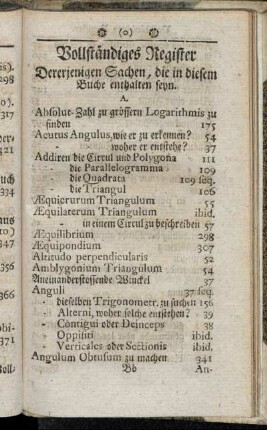 (o)
Vollständiges Register
Dererjenigen Sachen, die in diesem
Buche enthalten seyn.
A.
Absolut-Zahl zu grössern Logarithmis zu
finden 175
Acutus Angulus wie er zu erkennen? 54
- woher er entstehe? 37
Addiren die Circul und Polygona 111
- die Parallelogramma 109
- die Quadrata 109 seq.
- die Triangul 106
Æquicrurum Triangulum 55
Æquilaterum Triangulum ibid.
- in einem Circul zu beschreiben 57
Æquilibrium 298
Æquipondium 307
Altitudo perpendicularis 52
Amblygonium Triangulum 54
Aneinanderstossende Winckel 37
Anguli 37 seq.
- dieselben Trigonometr. zu suchen 156
- Alterni, woher solche entstehen? 39
- Contigui oder Deinceps 38
- Oppositi ibid.
- Verticales oder Sectionis ibid.
Angulum Obtusum zu machen 341
Bb An-